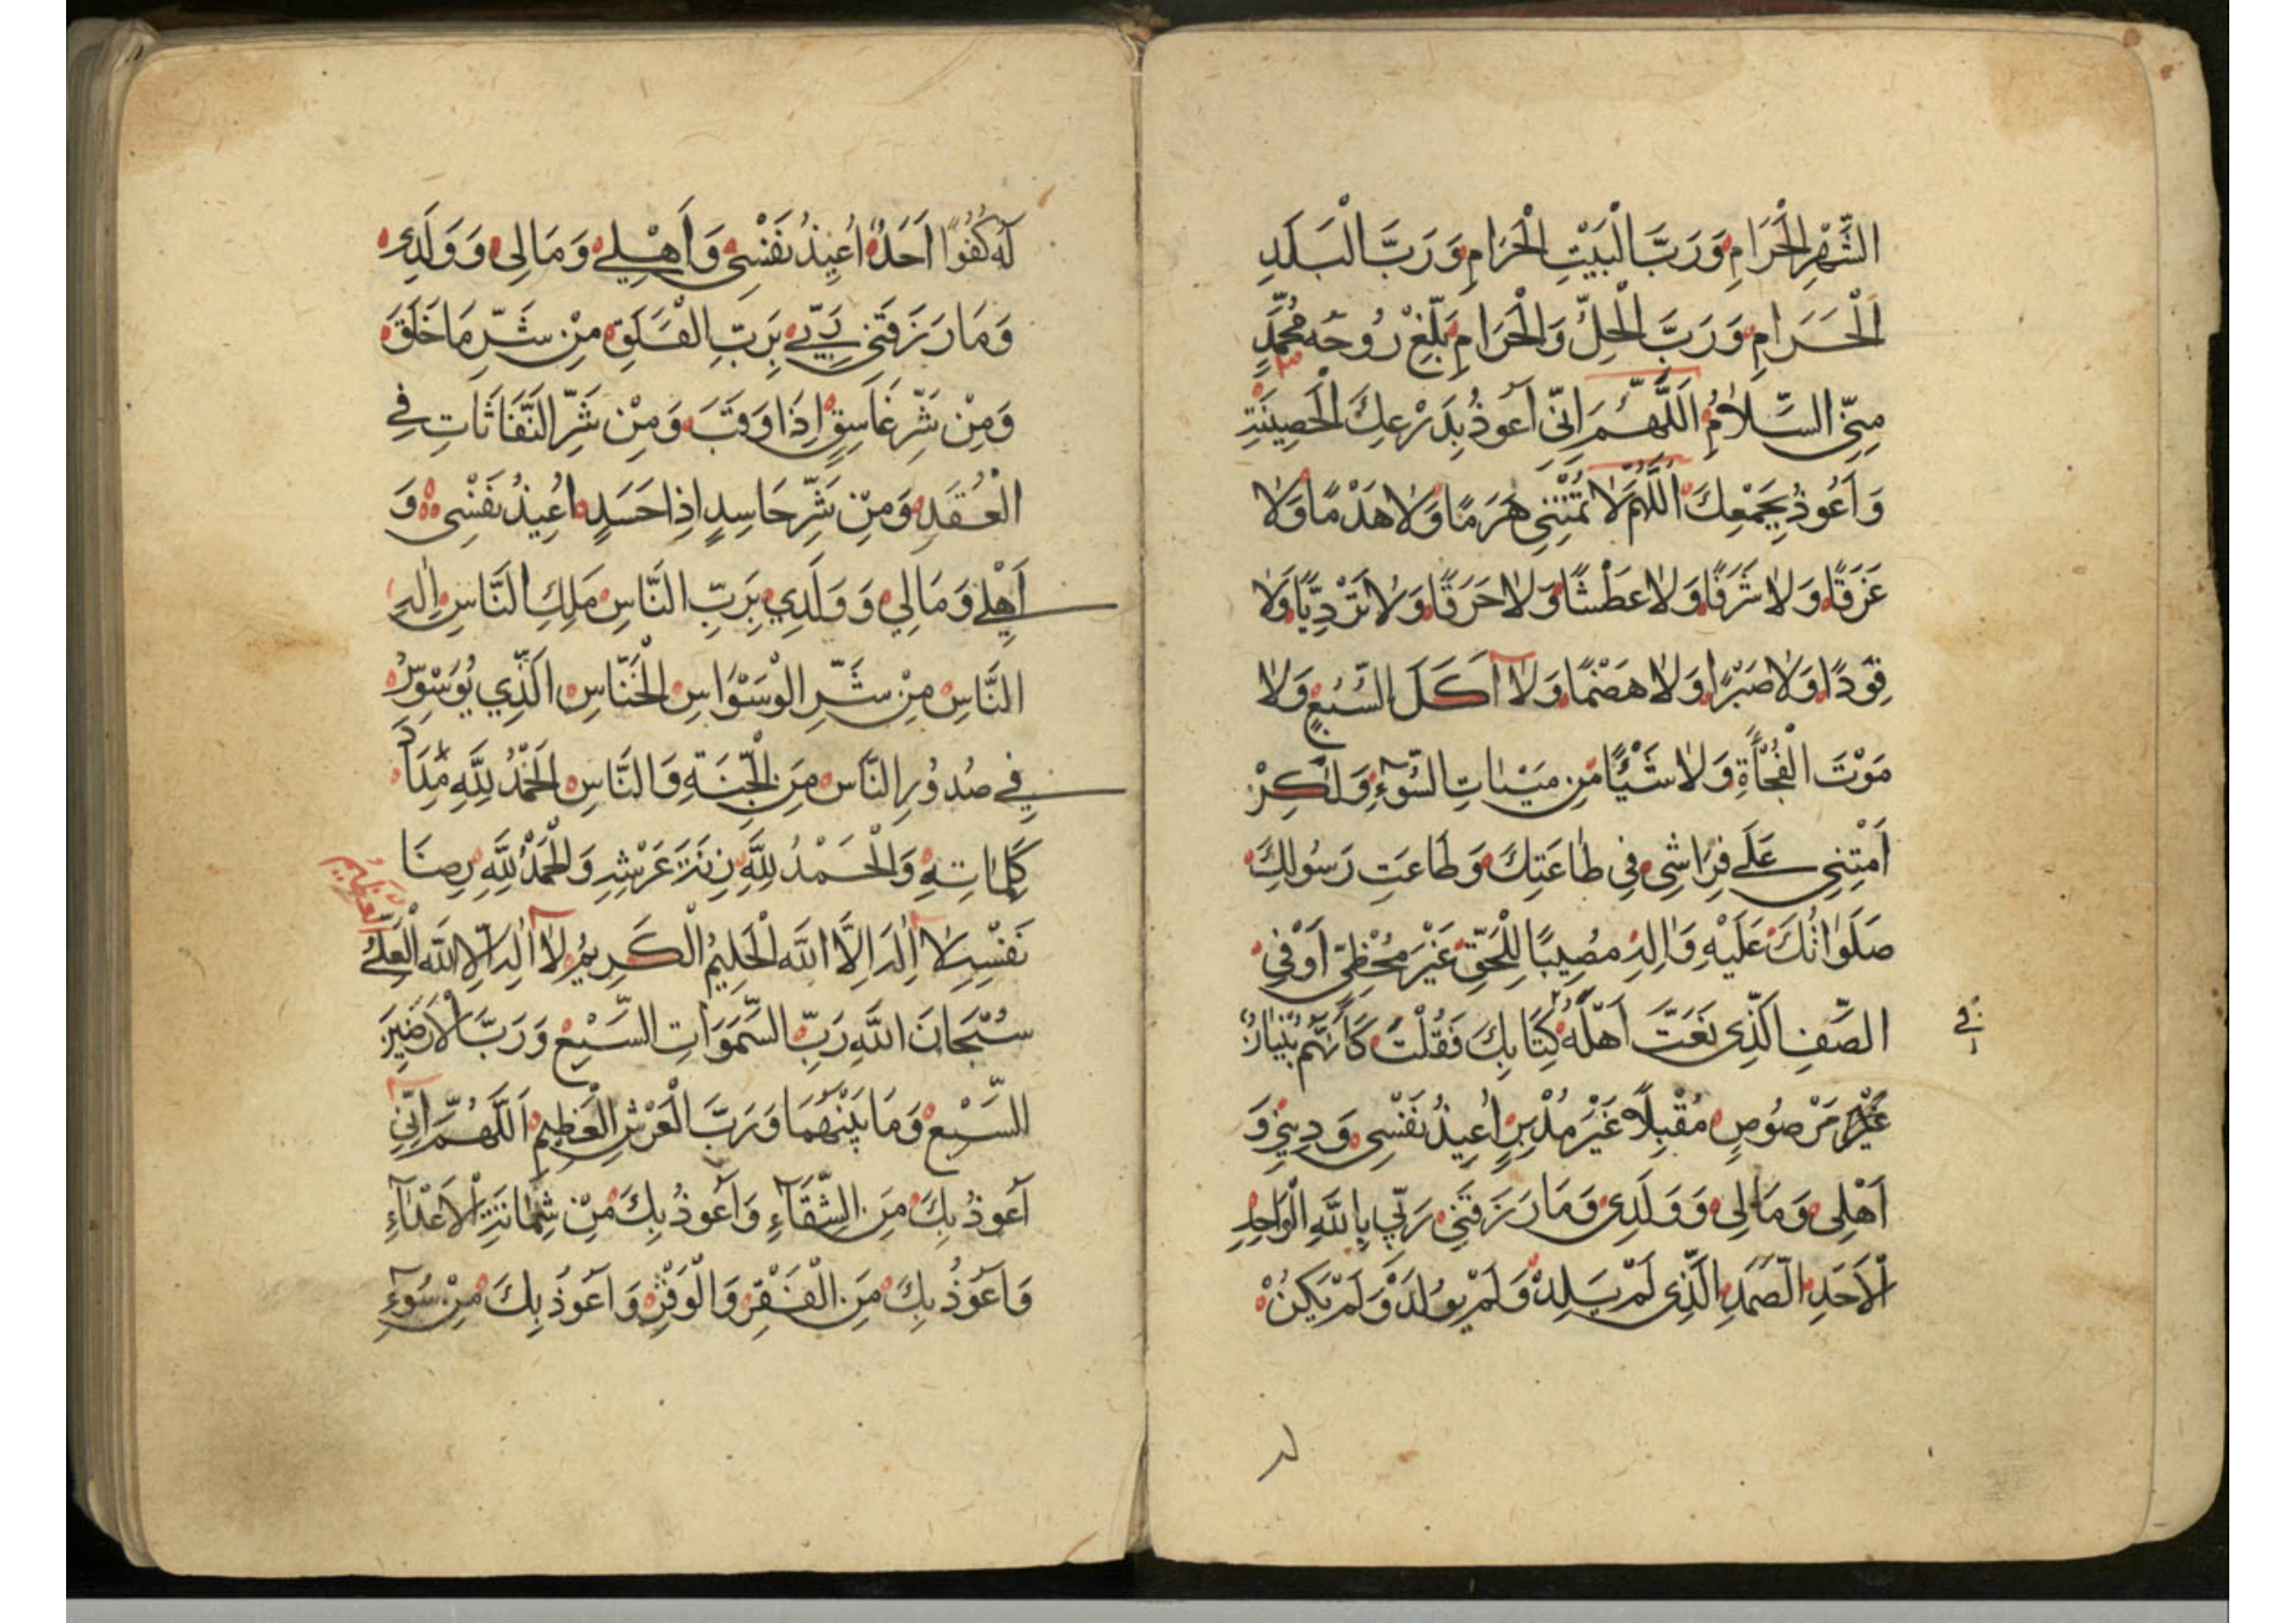 الشَّهْرِ الْحَرَامِ وَرَبَّ الْبَيْتِ الْحَرَامِ وَرَبَّ الْبَلَدِ
الْحَرَامِ وَرَبَّ الْحِلِّ وَالْحَرَامِ بَلِّغْ رُوحَهُ مُحَمَّدٍ
مِنِّي السَّلَامُ اَللَّهُمَّ اِنِّي اَعُوذُ بِدَرْعِكَ الْحَصِينَةِ
وَاَعُوذُ بِجَمْعِكَ اَللَّهُمَّ لَا تُمْتِنِي هَرَمًا وَلَا هَدْمًا وَلَا
غَرَقًا وَلَا شَرَقًا وَلَا عَطْشًا وَلَا حَرَقًا وَلَا تَرَدِّيًا وَلَا
قَوَدًا وَلَا صَبْرًا وَلَا هَضْمًا وَلَا اَكَلَ السَّبُعِ وَلَا
مَوْتَ الْفُجْأَةِ وَلَا شَيْئًا مِن مِيتَاتِ السُّوۤءِ وَلٰكِنْ
اَمْتِنِي عَلَى فِرَاشِي فِي طَاعَتِكَ وَطَاعَتِ رَسُولِكَ
صَلَوَاتُكَ عَلَيْهِ وَاٰلِهِ مُصِيبًا لِلْحَقِّ غَيْرَ مُخْطِئٍ اَوْ فِي
الصَّفِ الَّذِي نَعَتَّ اَهْلَهُ كِتَابِكَ فَقُلْتَ كَاَنَّهُمْ بُنْيَانٌ
فِي
مَرْصُوصٍ مُقْبِلًا غَيْرَ مُدْبِرٍ اُعِيذُ نَفْسِي وَدِينِي وَ
اَهْلِي وَمَالِي وَوَلَدِي وَمَا رَزَقَنِي رَبِّي بِاللَّهِ الْوَاحِدِ
الْاَحَدِ الصَّمَدِ الَّذِي لَمْ يَلِدْ وَلَمْ يُولَدْ وَلَمْ يَكُنْ
لَهُ كُفُوًا اَحَدٌ اُعِيذُ نَفْسِي وَاَهْلِي وَمَالِي وَوَلَدِي
وَمَا رَزَقَنِي رَبِّي بِرَبِّ الْفَلَقِ مِنْ شَرِّ مَا خَلَقَ
وَمِنْ شَرِّ غَاسِقٍ اِذَا وَقَبَ وَمِنْ شَرِّ النَّفَّاثَاتِ فِي
الْعُقَدِ وَمِنْ شَرِّ حَاسِدٍ اِذَا حَسَدَ اُعِيذُ نَفْسِي وَ
اَهْلِي وَمَالِي وَوَلَدِي بِرَبِّ النَّاسِ مَلِكِ النَّاسِ اِلٰهِ
النَّاسِ مِنْ شَرِّ الْوَسْوَاسِ الْخَنَّاسِ الَّذِي يُوَسْوِسُ
فِي صُدُورِ النَّاسِ مِنَ الْجِنَّةِ وَالنَّاسِ الْحَمْدُ لِلَّهِ مِدَادَ
كَلِمَاتِهِ وَالْحَمْدُ لِلَّهِ زِنَةَ عَرْشِهِ وَالْحَمْدُ لِلَّهِ رِضَا
نَفْسِهِ لَا اِلٰهَ اِلَّا اللَّهُ الْحَلِيمُ الْكَرِيمُ لَا اِلٰهَ اِلَّا اللَّهُ الْعَلِيُّ
الْعَظِيمُ
سُبْحَانَ اللَّهِ رَبِّ السَّمٰوَاتِ السَّبْعِ وَرَبَّ الْاَرَضِينَ
السَّبْعِ وَمَا بَيْنَهُمَا وَرَبَّ الْعَرْشِ الْعَظِيمِ اَللَّهُمَّ اِنِّي
اَعُوذُ بِكَ مِنَ الشَّقَاۤءِ وَاَعُوذُ بِكَ مِنْ شَمَاتَةِ الْاَعْدَاۤءِ
وَاَعُوذُ بِكَ مِنَ الْفَقْرِ وَالْوَقْرِ وَاَعُوذُ بِكَ مِنْ سُوۤءِ